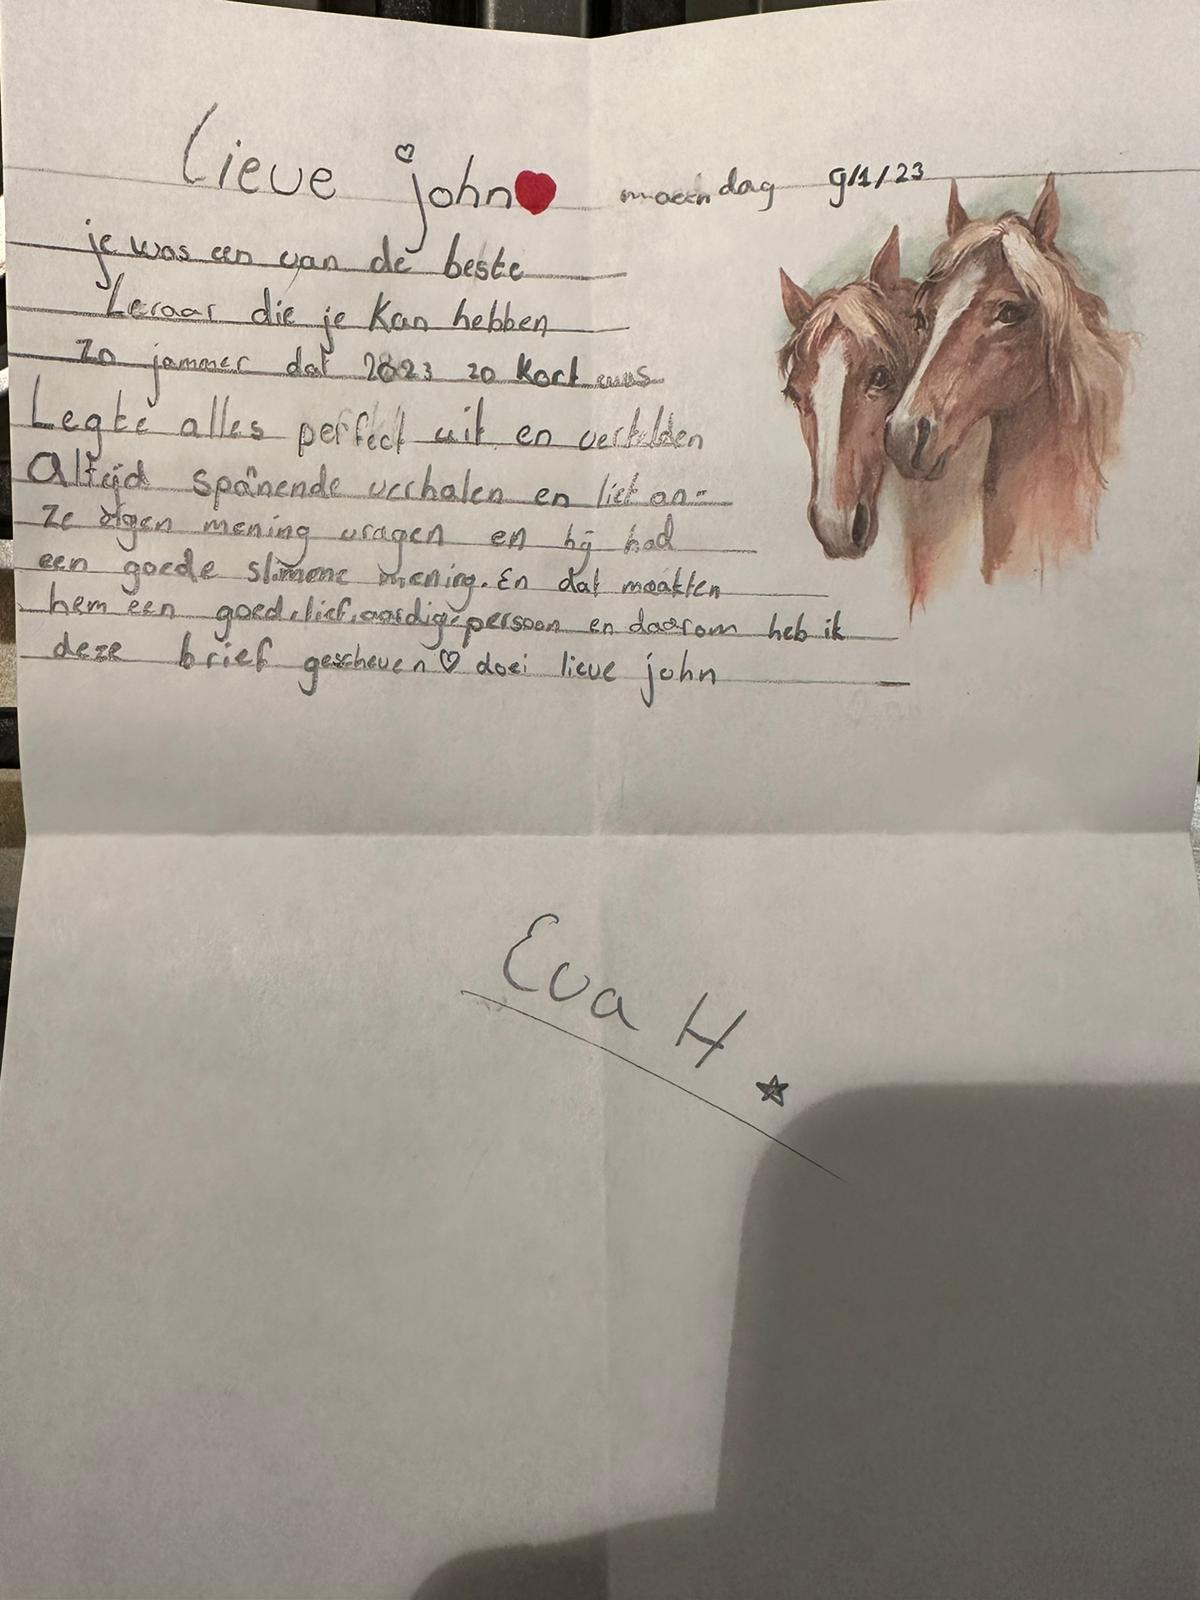 Lieve john
maendag 9/1/23
je was een van de beste
Leraar die je kan hebben
Zo jammer dat 2023 zo kort was
Legte alles perfect uit en vertelden
Altijd spanende verhalen en liet on-
ze eigen mening vragen en hij had
een goede slimene mening. En dat maakten
hem een goed, lief, aardige persoon en daarom heb ik
deze brief gescheven ♡ doei lieve john
Eva H